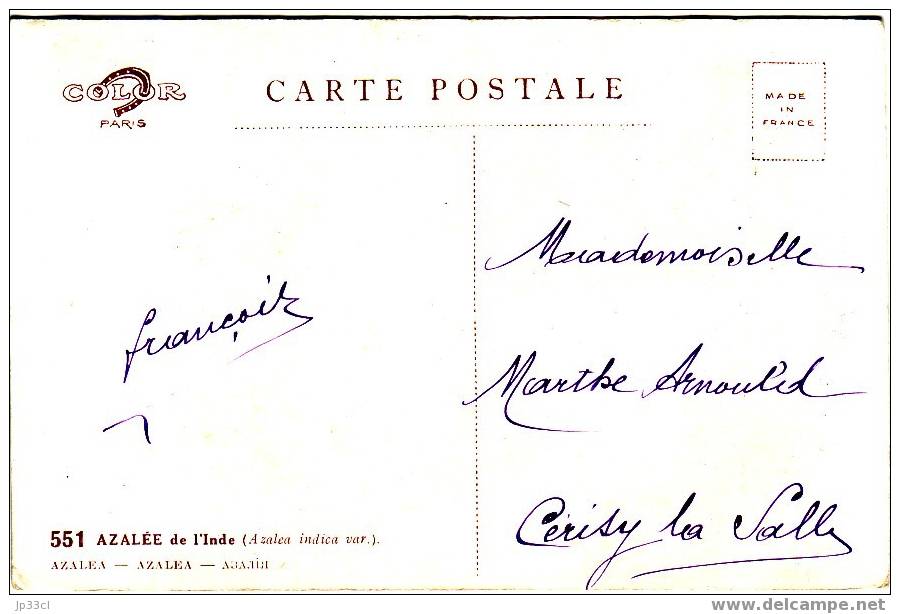 COLOR
PARIS
CARTE POSTALE
MADE
IN
FRANCE
Mademoiselle
françois
Marthe Arnould
Cérisy la Salle
551 AZALÉE de l'Inde (Azalea indica var.).
AZALEA — AZALEA — АЗАЛІЯ
jp33cl
www.delcampe.net